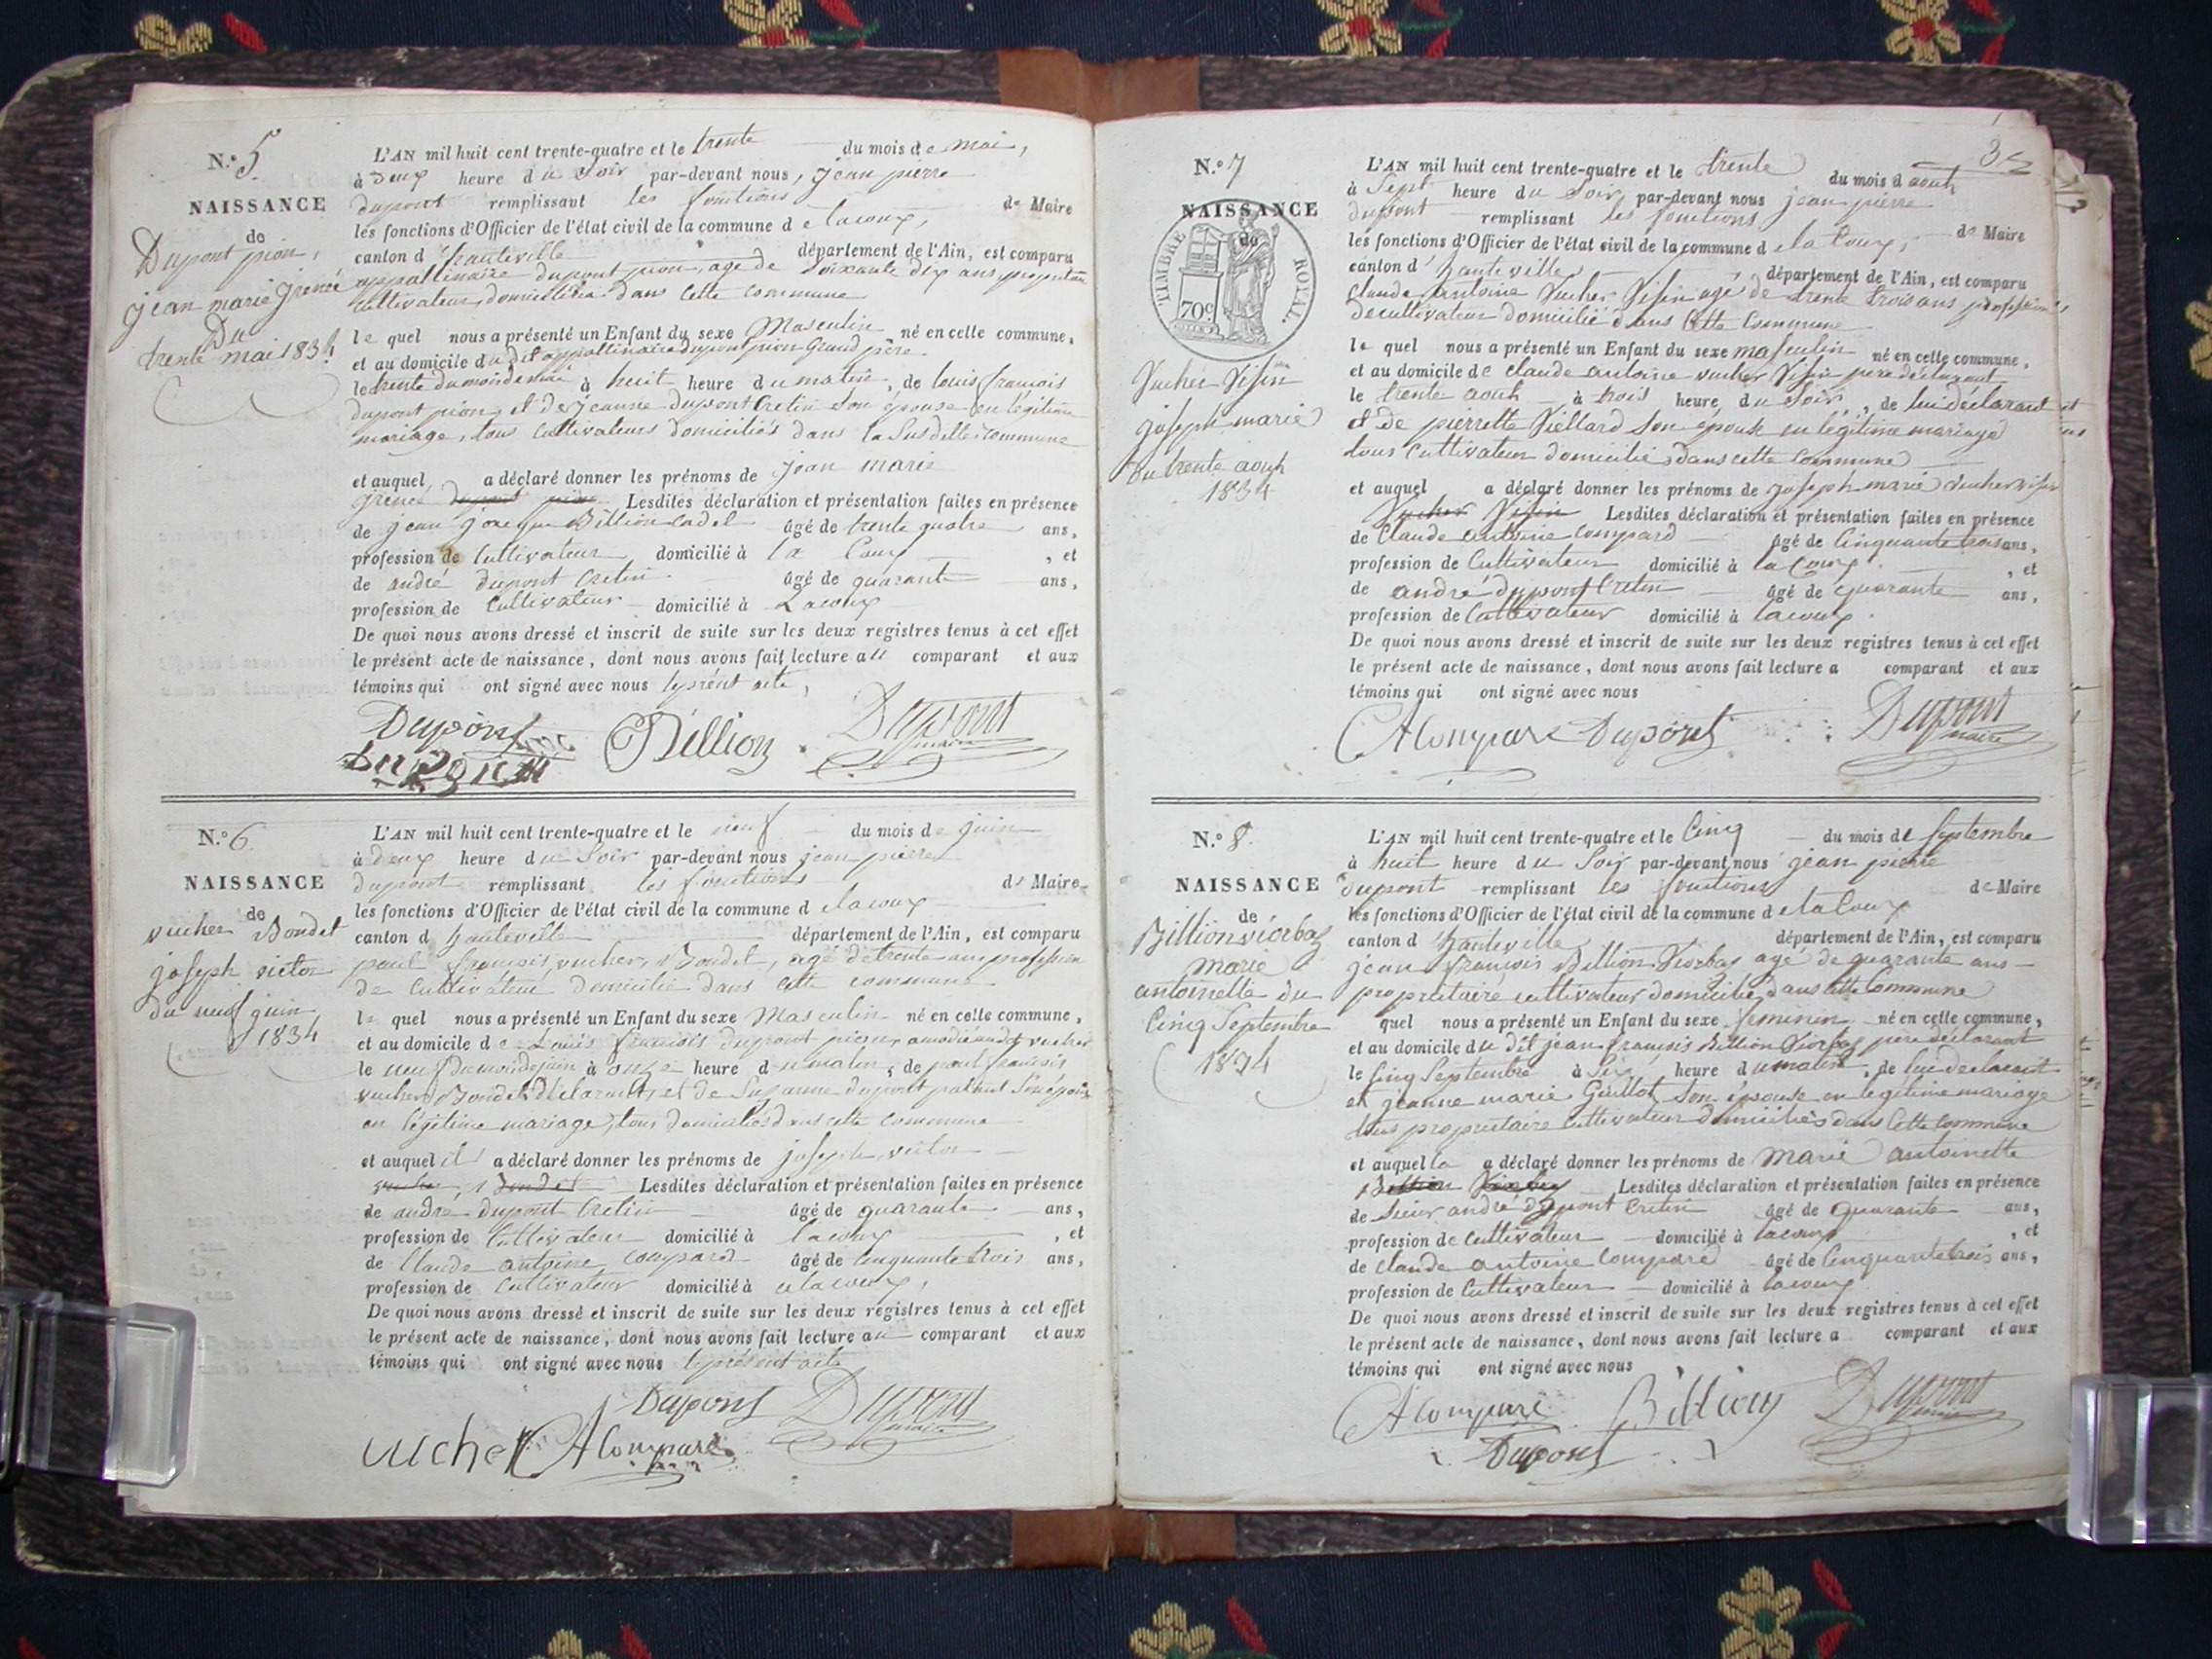 N.º 5
NAISSANCE
de
Dupont pion,
jean marie Irené
Du
trente mai 1834
L'AN mil huit cent trente-quatre et le trente du mois de mai,
à deux heure du Soir par-devant nous, jean pierre
dupont remplissant les fonctions de Maire
les fonctions d'Officier de l'état civil de la commune de lacoux,
canton d'hauteville département de l'Ain, est comparu
appollinaire dupont pion, age de Soixante dix ans, propriétaire
cultivateur, domicilié dans cette commune
le quel nous a présenté un Enfant du sexe Masculin né en celle commune,
et au domicile du dit appollinaire dupont pion Grand père
le trente du mois de mai à huit heure du matin, de louis françois
dupont pion, et de jeanne dupont Cretin Son épouse en légitime
mariage, tous Cultivateurs domiciliés dans la Susditte commune
et auquel a déclaré donner les prénoms de jean marie
Irené Lesdites déclaration et présentation faites en présence
de jean jacque Billion Cadet âgé de trente quatre ans,
profession de Cultivateur domicilié à la Coux , et
de andré dupont Cretin âgé de quarante ans,
profession de Cultivateur domicilié à Lacoux
De quoi nous avons dressé et inscrit de suite sur les deux registres tenus à cet effet
le présent acte de naissance, dont nous avons fait lecture au comparant et aux
témoins qui ont signé avec nous le présent acte,
Dupont Billion Dupont
maire
N.º 6
NAISSANCE
de
vucher Bondet
joseph victor
du neuf juin
1834
L'AN mil huit cent trente-quatre et le neuf du mois de juin
à deux heure du Soir par-devant nous jean pierre
dupont remplissant les fonctions de Maire
les fonctions d'Officier de l'état civil de la commune d elacoux
canton d hauteville département de l'Ain, est comparu
paul françois vucher Bondet, agé de trente ans profession
de Cultivateur domicilié dans cette commune
le quel nous a présenté un Enfant du sexe Masculin né en celle commune,
et au domicile de Louis françois dupont pion
le neuf du mois de juin à onze heure du matin, de paul françois
vucher Bondet déclarant, et de Suzanne dupont Son épouse
en légitime mariage, tous domiciliés dans cette commune
et auquel il a déclaré donner les prénoms de joseph victor
vucher Bondet Lesdites déclaration et présentation faites en présence
de andré dupont Cretin âgé de quarante ans,
profession de Cultivateur domicilié à lacoux , et
de Claude antoine Compard âgé de Cinquante trois ans,
profession de Cultivateur domicilié à lacoux,
De quoi nous avons dressé et inscrit de suite sur les deux registres tenus à cet effet
le présent acte de naissance, dont nous avons fait lecture au comparant et aux
témoins qui ont signé avec nous le présent acte
Dupont Dupont
maire
vucher A Compard
35
N.º 7
NAISSANCE
de
TIMBRE ROYAL.
70c
Vucher Visin
joseph marie
Du trente aout
1834
L'AN mil huit cent trente-quatre et le trente du mois d aout
à Sept heure du Soir, par-devant nous jean pierre
dupont remplissant les fonctions de Maire
les fonctions d'Officier de l'état civil de la commune d ela Coux,
canton d'hauteville département de l'Ain, est comparu
Claude antoine Vucher Visin agé de trente trois ans profession
de cultivateur domicilié dans Cette Commune
le quel nous a présenté un Enfant du sexe masculin né en celle commune,
et au domicile de Claude antoine vucher Visin père déclarant
le trente aout à trois heure du Soir, de lui déclarant
et de pierrette Viellard Son épouse en légitime mariage
tous Cultivateur domiciliés dans cette Commune
et auquel a déclaré donner les prénoms de joseph marie vucher visin
Vucher Visin Lesdites déclaration et présentation faites en présence
de Claude antoine Compard âgé de Cinquante trois ans,
profession de Cultivateur domicilié à la Coux , et
de andré dupont Cretin âgé de quarante ans,
profession de Cultivateur domicilié à lacoux.
De quoi nous avons dressé et inscrit de suite sur les deux registres tenus à cet effet
le présent acte de naissance, dont nous avons fait lecture a comparant et aux
témoins qui ont signé avec nous
A Compare Dupont Dupont
maire
N.º 8.
NAISSANCE
de
Billion viorbaz
marie
antoinette du
Cinq Septembre
1834
L'AN mil huit cent trente-quatre et le Cinq du mois de Septembre
à huit heure du Soir par-devant nous jean pierre
dupont remplissant les fonctions de Maire
les fonctions d'Officier de l'état civil de la commune d ela Coux
canton d'hauteville département de l'Ain, est comparu
jean françois Billion Viorbaz agé de quarante ans
propriétaire cultivateur domicilié dans cette Commune
quel nous a présenté un Enfant du sexe feminin né en celle commune,
et au domicile du dit jean françois Billion Viorbaz père déclarant
le Cinq Septembre à Six heure du matin, de lui declarant
et jeanne marie Guillot Son épouse en legitime mariage
tous proprietaire Cultivateur domiciliés dans Cette Commune
et auquel la a déclaré donner les prénoms de marie antoinette
Billion Viorbaz Lesdites déclaration et présentation faites en présence
de Sieur andré dupont Cretin âgé de quarante ans,
profession de Cultivateur domicilié à lacoux , et
de Claude antoine Compard âgé de Cinquante trois ans,
profession de Cultivateur domicilié à lacoux
De quoi nous avons dressé et inscrit de suite sur les deux registres tenus à cet effet
le présent acte de naissance, dont nous avons fait lecture a comparant et aux
témoins qui ont signé avec nous
A Compare Billion Dupont
maire
Dupont